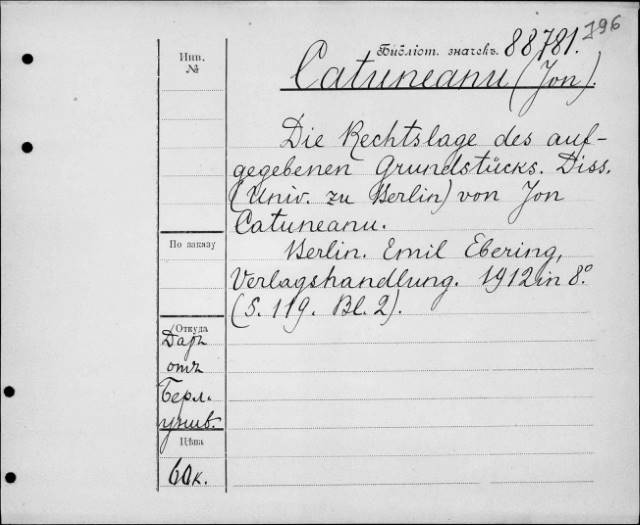 196
Библіот. значекъ. 88781.
Инв.
№
Catuneanu (Jon).
Die Rechtslage des auf-
gegebenen Grundstücks. Diss.
(Univ. zu Berlin) von Jon
Catuneanu.
Berlin. Emil Ebering,
Verlagshandlung. 1912 in 8º
(S. 119. Bl. 2).
По заказу
Откуда
Даръ
отъ
Берл.
унив.
Цѣна
60 к.